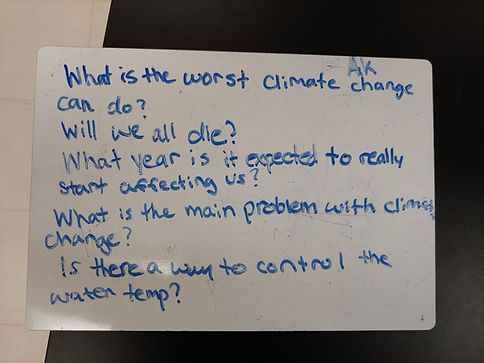 AK
What is the worst climate change
can do?
Will we all die?
What year is it expected to really
start affecting us?
What is the main problem with climate
change?
Is there a way to control the
water temp?